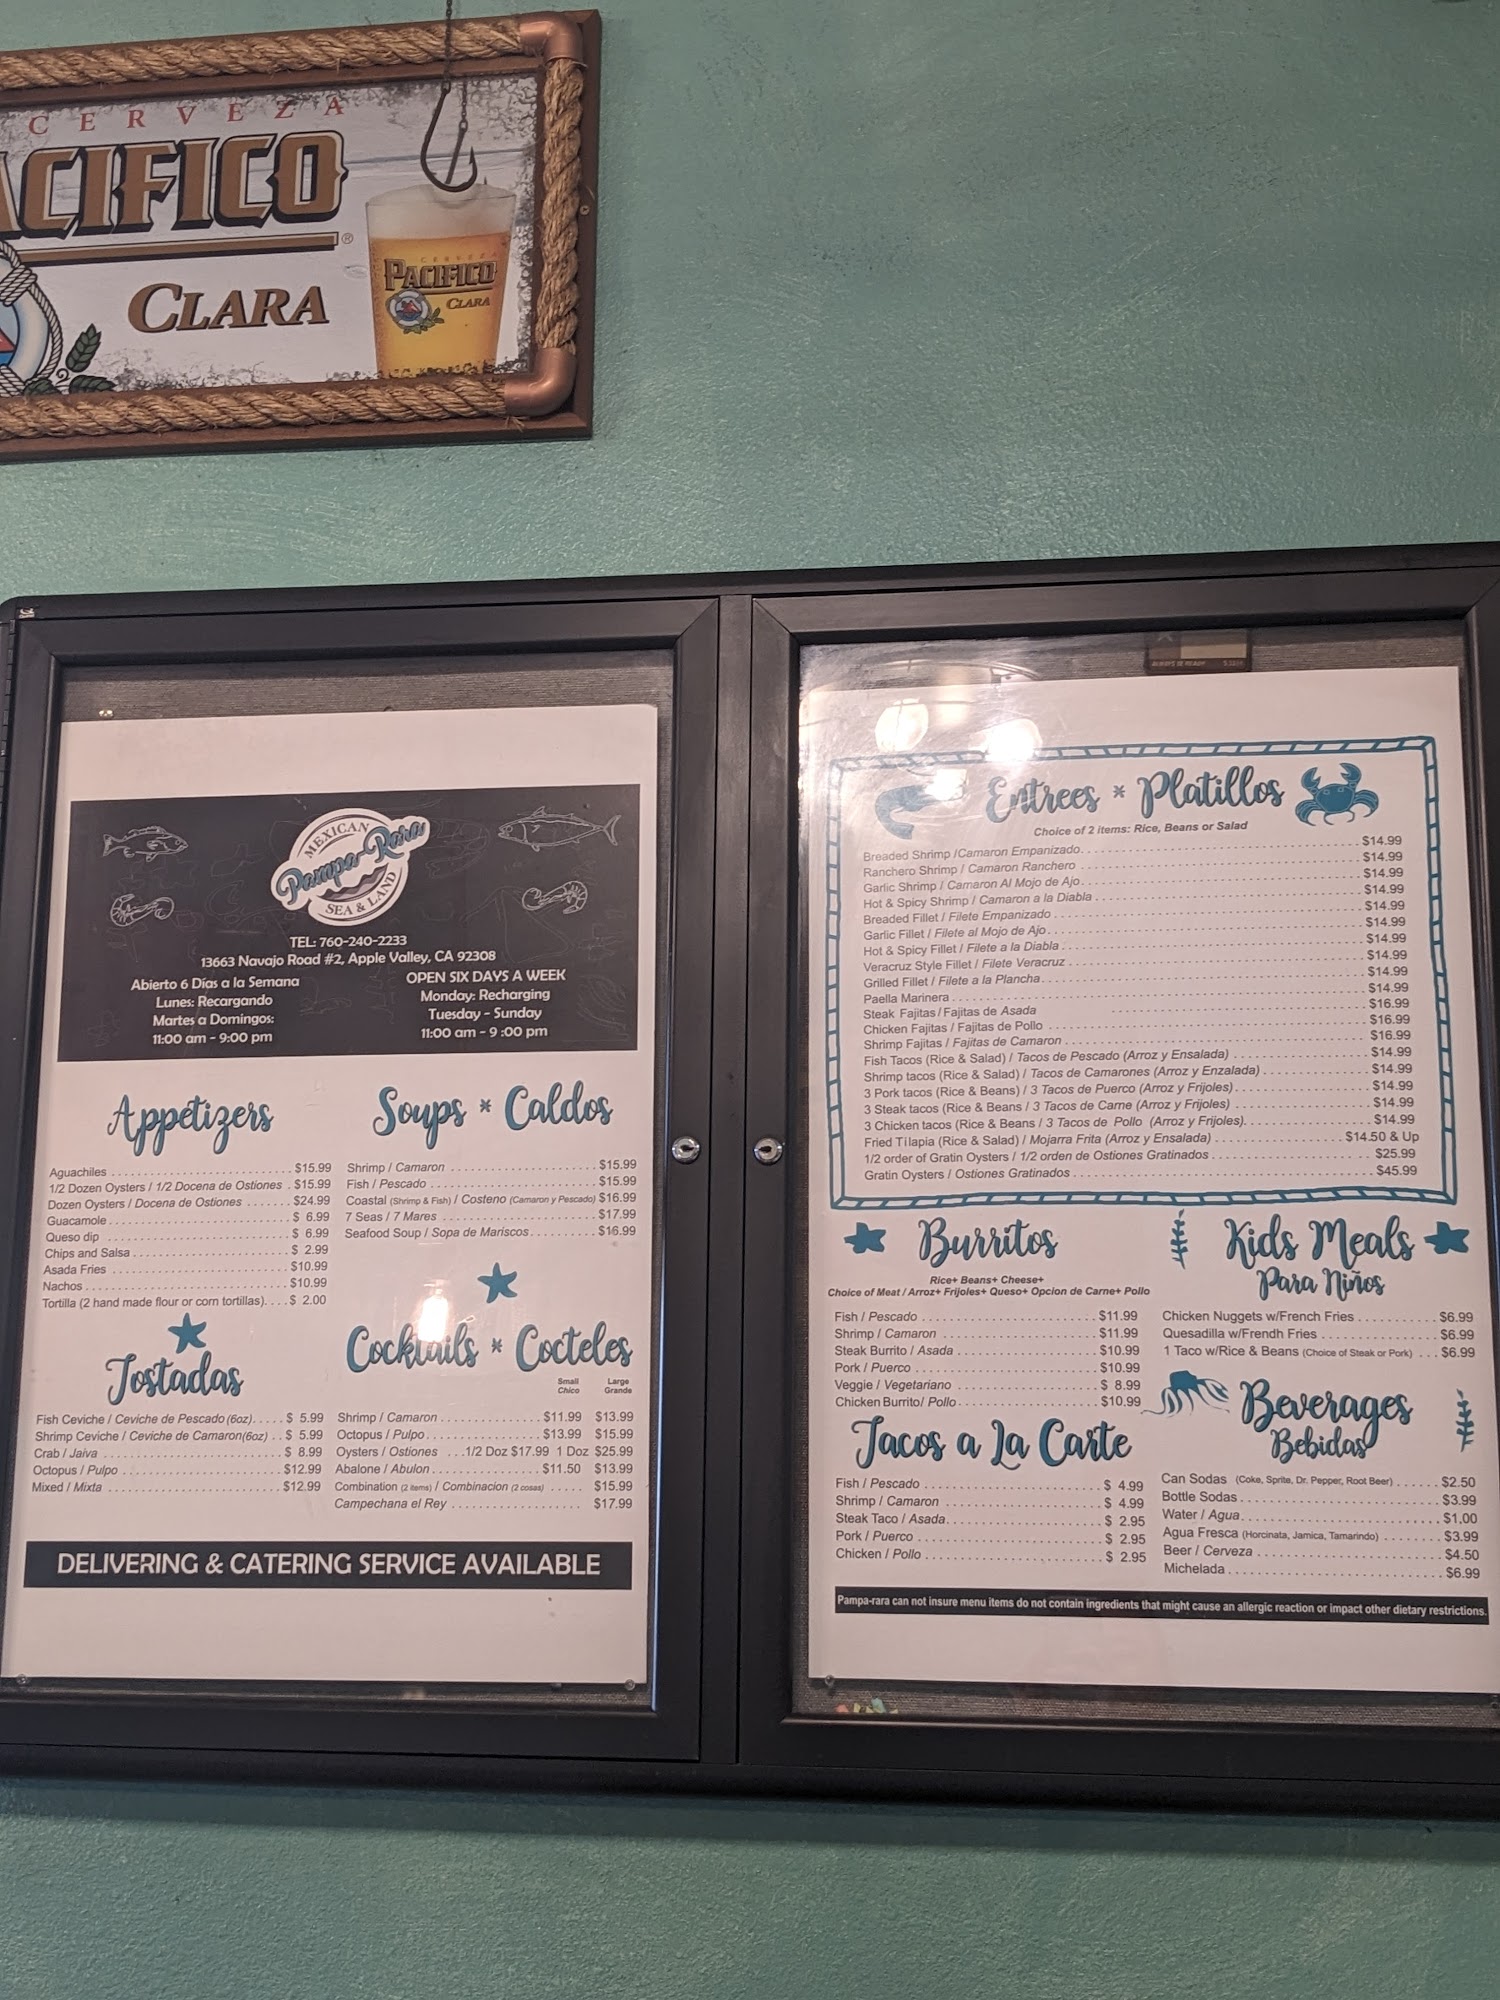 CERVEZA
ACIFICO
®
CLARA
CERVEZA
PACIFICO
CLARA
MEXICAN
Pampa-Rara
SEA & LAND
TEL: 760-240-2233
13663 Navajo Road #2, Apple Valley, CA 92308
Abierto 6 Días a la Semana
Lunes: Recargando
Martes a Domingos:
11:00 am - 9:00 pm
OPEN SIX DAYS A WEEK
Monday: Recharging
Tuesday - Sunday
11:00 am - 9 :00 pm
Appetizers
Aguachiles $15.99
1/2 Dozen Oysters / 1/2 Docena de Ostiones $15.99
Dozen Oysters / Docena de Ostiones $24.99
Guacamole $ 6.99
Queso dip $ 6.99
Chips and Salsa $ 2.99
Asada Fries $10.99
Nachos $10.99
Tortilla (2 hand made flour or corn tortillas) $ 2.00
Soups * Caldos
Shrimp / Camaron $15.99
Fish / Pescado $15.99
Coastal (Shrimp & Fish) / Costeno (Camaron y Pescado) $16.99
7 Seas / 7 Mares $17.99
Seafood Soup / Sopa de Mariscos $16.99
Tostadas
Fish Ceviche / Ceviche de Pescado (6oz) $ 5.99
Shrimp Ceviche / Ceviche de Camaron(6oz) $ 5.99
Crab / Jaiva $ 8.99
Octopus / Pulpo $12.99
Mixed / Mixta $12.99
Cocktails * Cocteles
Small Large
Chico Grande
Shrimp / Camaron $11.99 $13.99
Octopus / Pulpo $13.99 $15.99
Oysters / Ostiones 1/2 Doz $17.99 1 Doz $25.99
Abalone / Abulon $11.50 $13.99
Combination (2 items) / Combinacion (2 cosas) $15.99
Campechana el Rey $17.99
DELIVERING & CATERING SERVICE AVAILABLE
ALWAYS BE READY
Entrees * Platillos
Choice of 2 items: Rice, Beans or Salad
Breaded Shrimp /Camaron Empanizado $14.99
Ranchero Shrimp / Camaron Ranchero $14.99
Garlic Shrimp / Camaron Al Mojo de Ajo $14.99
Hot & Spicy Shrimp / Camaron a la Diabla $14.99
Breaded Fillet / Filete Empanizado $14.99
Garlic Fillet / Filete al Mojo de Ajo $14.99
Hot & Spicy Fillet / Filete a la Diabla $14.99
Veracruz Style Fillet / Filete Veracruz $14.99
Grilled Fillet / Filete a la Plancha $14.99
Paella Marinera $14.99
Steak Fajitas / Fajitas de Asada $16.99
Chicken Fajitas / Fajitas de Pollo $16.99
Shrimp Fajitas / Fajitas de Camaron $16.99
Fish Tacos (Rice & Salad) / Tacos de Pescado (Arroz y Ensalada) $14.99
Shrimp tacos (Rice & Salad) / Tacos de Camarones (Arroz y Enzalada) $14.99
3 Pork tacos (Rice & Beans) / 3 Tacos de Puerco (Arroz y Frijoles) $14.99
3 Steak tacos (Rice & Beans / 3 Tacos de Carne (Arroz y Frijoles) $14.99
3 Chicken tacos (Rice & Beans / 3 Tacos de Pollo (Arroz y Frijoles) $14.99
Fried Tilapia (Rice & Salad) / Mojarra Frita (Arroz y Ensalada) $14.50 & Up
1/2 order of Gratin Oysters / 1/2 orden de Ostiones Gratinados $25.99
Gratin Oysters / Ostiones Gratinados $45.99
Burritos
Rice+ Beans+ Cheese+
Choice of Meat / Arroz+ Frijoles+ Queso+ Opcion de Carne+ Pollo
Fish / Pescado $11.99
Shrimp / Camaron $11.99
Steak Burrito / Asada $10.99
Pork / Puerco $10.99
Veggie / Vegetariano $ 8.99
Chicken Burrito/ Pollo $10.99
Kids Meals
Para Niños
Chicken Nuggets w/French Fries $6.99
Quesadilla w/Frendh Fries $6.99
1 Taco w/Rice & Beans (Choice of Steak or Pork) $6.99
Tacos a La Carte
Fish / Pescado $ 4.99
Shrimp / Camaron $ 4.99
Steak Taco / Asada $ 2.95
Pork / Puerco $ 2.95
Chicken / Pollo $ 2.95
Beverages
Bebidas
Can Sodas (Coke, Sprite, Dr. Pepper, Root Beer) $2.50
Bottle Sodas $3.99
Water / Agua $1.00
Agua Fresca (Horcinata, Jamica, Tamarindo) $3.99
Beer / Cerveza $4.50
Michelada $6.99
Pampa-rara can not insure menu items do not contain ingredients that might cause an allergic reaction or impact other dietary restrictions.